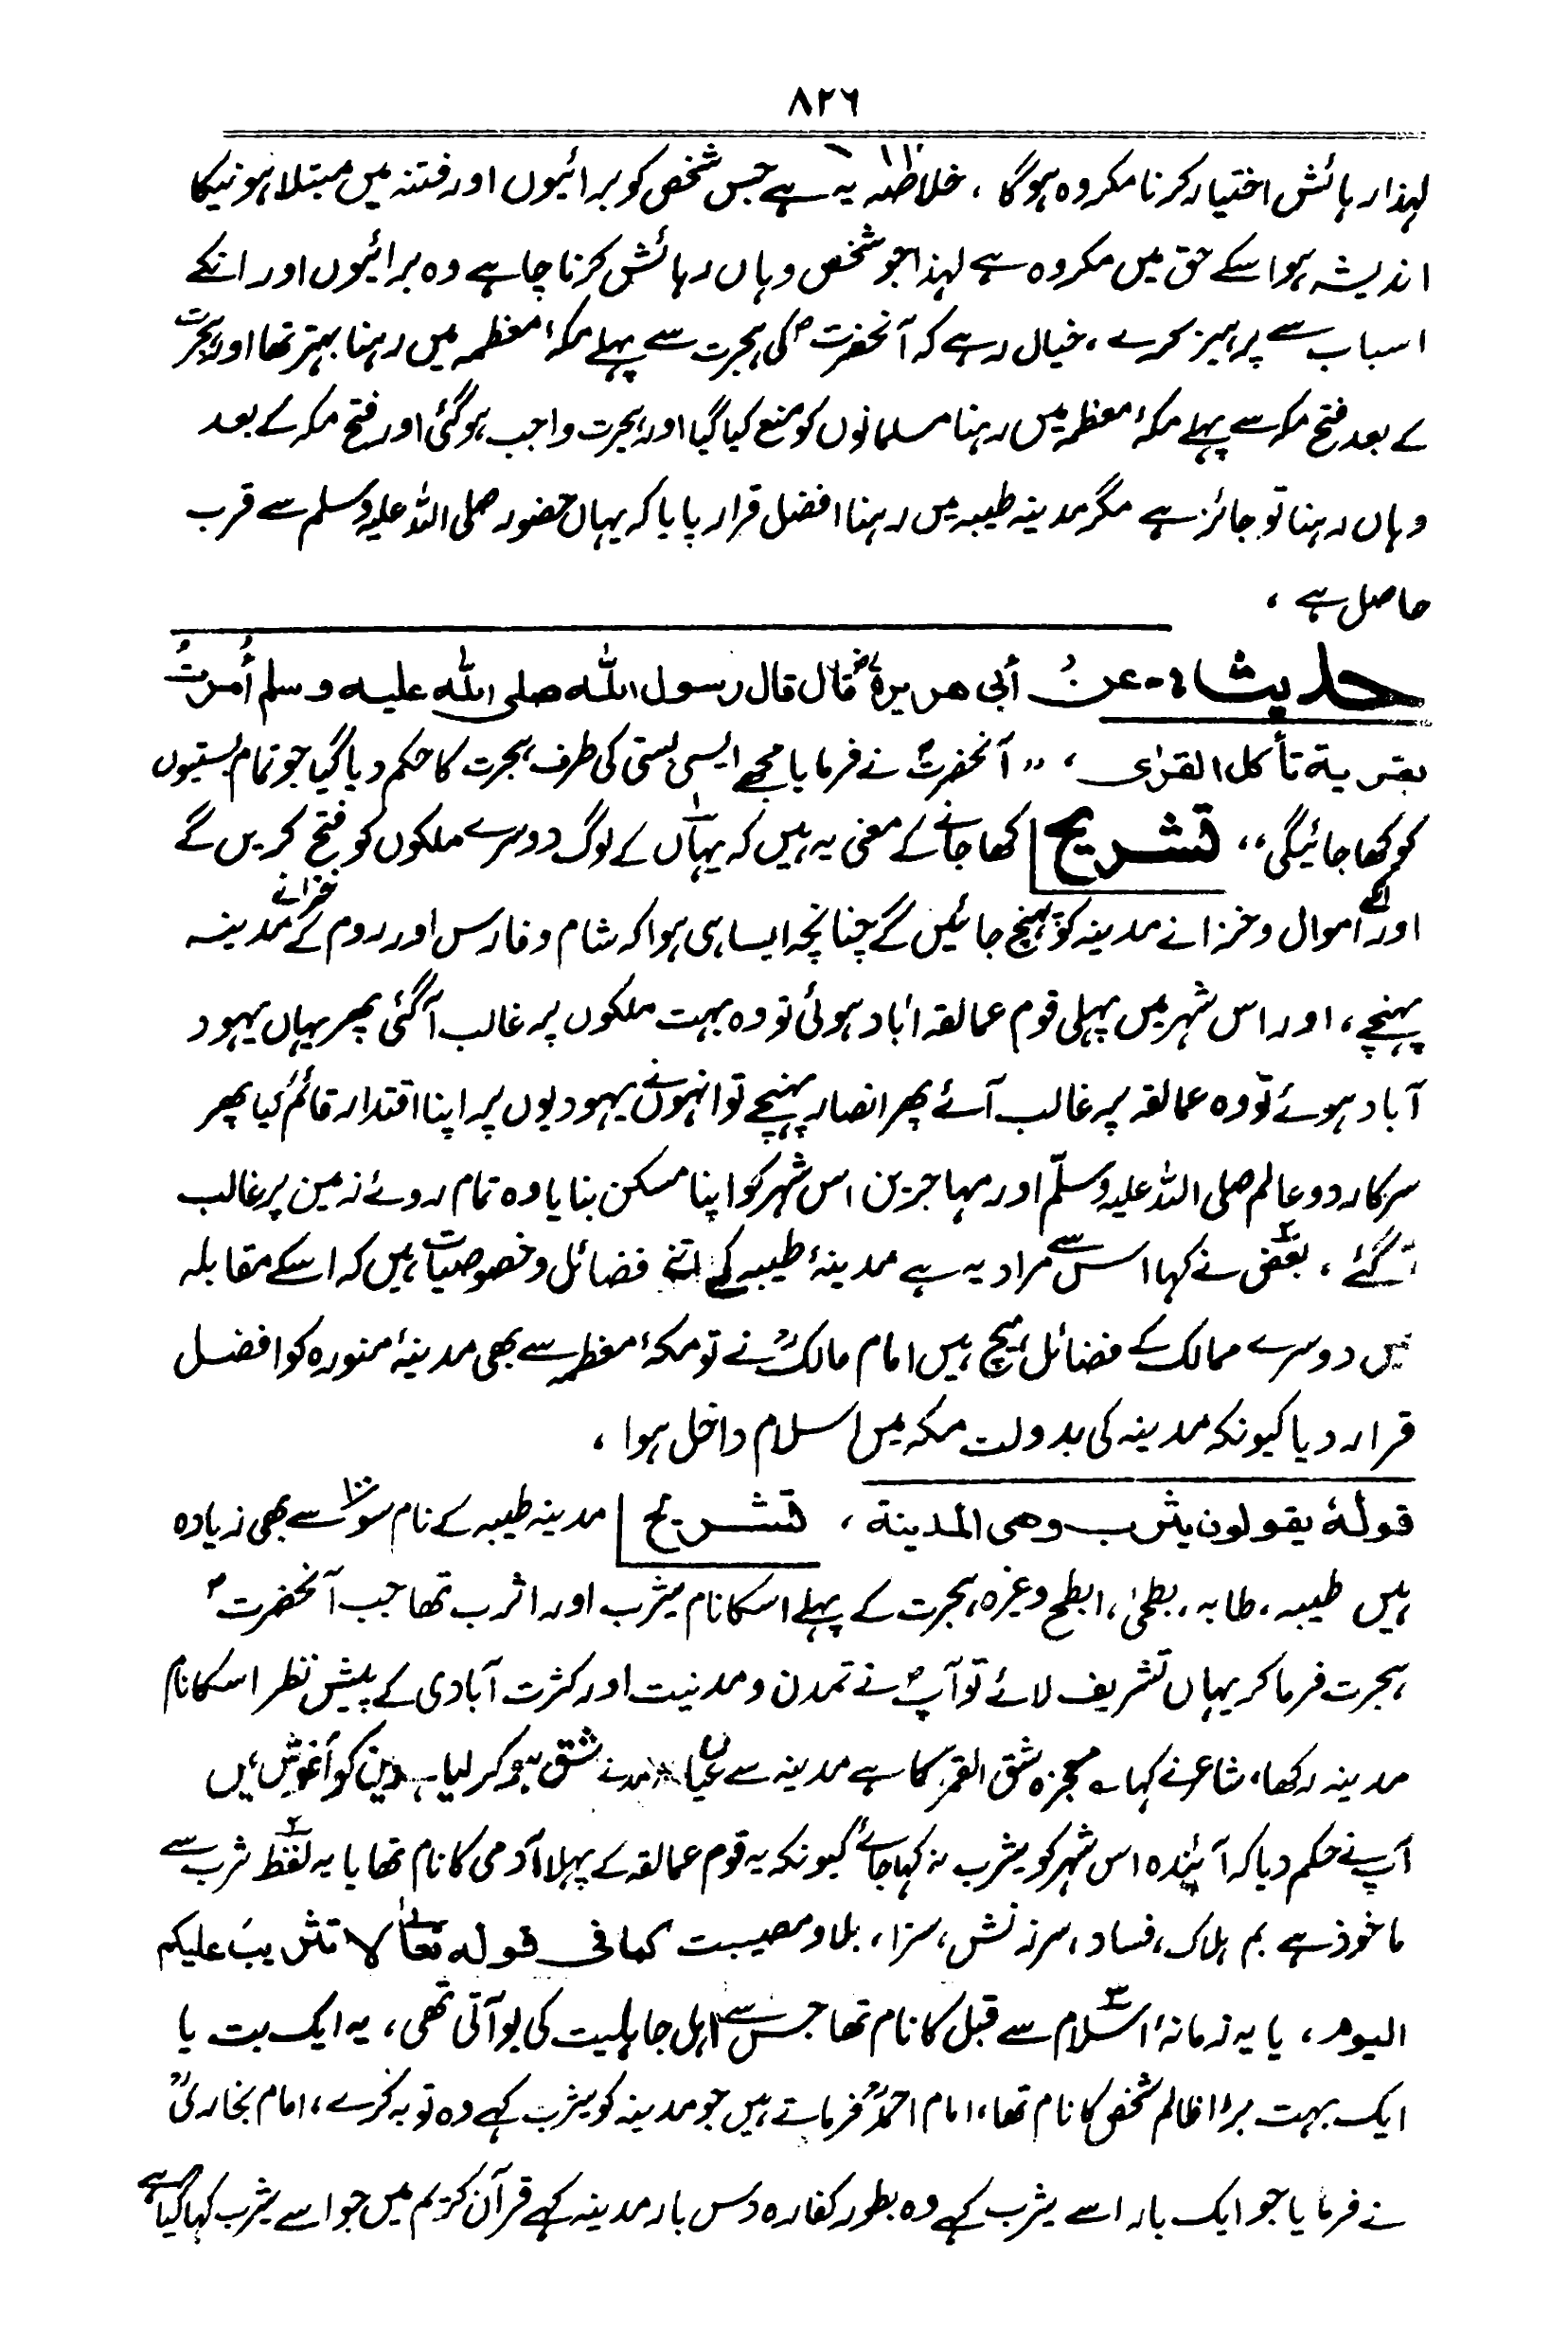 ۸۲۶
لہذا رہائش اختیار کرنا مکروہ ہوگا ، خلاصہ یہ ہے جس شخص کو برائیوں اور فتنہ میں مبتلا ہونیکا
اندیشہ ہو اسکے حق میں مکروہ ہے لہذا جو شخص وہاں رہائش کرنا چاہے وہ برائیوں اور انکے
اسباب سے پرہیز کرے ، خیال رہے کہ آنحضرت ؐ کی ہجرت سے پہلے مکۂ معظمہ میں رہنا بہتر تھا اور ہجرت
کے بعد فتح مکہ سے پہلے مکۂ معظمہ میں رہنا مسلمانوں کو منع کیا گیا اور ہجرت واجب ہوگئی اور فتح مکہ کے بعد
وہاں رہنا تو جائز ہے مگر مدینہ طیبہ میں رہنا افضل قرار پایا کہ یہاں حضور صلی اللہ علیہ وسلم سے قرب
حاصل ہے ،
حدیث :- عنْ أبی ھریرۃؓ قال قال رسول اللّٰہ صلی اللّٰہ علیہ وسلم أُمرتُ
بقریۃ تأکل القرٰی ، ،، آنحضرتؐ نے فرمایا مجھے ایسی بستی کی طرف ہجرت کا حکم دیا گیا جو تمام بستیوں
کو کھا جائیگی ،، تشریح کھا جانے کے معنی یہ ہیں کہ یہاں کے لوگ دوسرے ملکوں کو فتح کریں گے
اور انکے اموال و خزانے مدینہ کو پہنچ جائیں گے چنانچہ ایسا ہی ہوا کہ شام و فارس اور روم کے خزانے مدینہ
پہنچے ، اور اس شہر میں پہلی قوم عمالقہ آباد ہوئی تو وہ بہت ملکوں پر غالب آگئی پھر یہاں یہود
آباد ہوئے تو وہ عمالقہ پر غالب آئے پھر انصار پہنچے تو انہوں نے یہودیوں پر اپنا اقتدار قائم کیا پھر
سرکار دو عالم صلی اللہ علیہ وسلّم اور مہاجرین اس شہر کو اپنا مسکن بنایا وہ تمام روئے زمین پر غالب
آگئے ، بعض نے کہا اس سے مراد یہ ہے مدینۂ طیبہ کے اتنے فضائل و خصوصیات ہیں کہ اسکے مقابلہ
میں دوسرے ممالک کے فضائل ہیچ ہیں امام مالکؒ نے تو مکۂ معظمہ سے بھی مدینۂ منورہ کو افضل
قرار دیا کیونکہ مدینہ کی بدولت مکہ میں اسلام داخل ہوا ،
قولہٗ یقولون یثرب وھی المدینۃ ، تشریح مدینہ طیبہ کے نام سو ۱۰۰ سے بھی زیادہ
ہیں طیبہ ، طابہ ، بطحیٰ ، ابطح وغیرہ ، ہجرت کے پہلے اسکا نام یثرب اور اثرب تھا جب آنحضرت ؐ
ہجرت فرما کر یہاں تشریف لائے تو آپؐ نے تمدن و مدنیت اور کثرت آبادی کے پیش نظر اسکا نام
مدینہ رکھا ، شاعر نے کہا ؎ معجزہ شق القمر کا ہے مدینہ سے عیاں مہ نے شق ہو کر لیا ہے دین کو آغوش میں
آپ نے حکم دیا کہ آیندہ اس شہر کو یثرب نہ کہا جائے کیونکہ یہ قوم عمالقہ کے پہلا آدمی کا نام تھا یا یہ لفظ ثرب سے
ماخوذ ہے بم ہلاک ، فساد ، سرزنش ، سزا ، بلا و مصیبت کما فی قولہ تعالٰی لا تثریبَ علیکم
الیوم ، یا یہ زمانۂ اسلام سے قبل کا نام تھا جس سے اہل جاہلیت کی بو آتی تھی ، یہ ایک بت یا
ایک بہت بڑا ظالم شخص کا نام تھا ، امام احمدؒ فرماتے ہیں جو مدینہ کو یثرب کہے وہ توبہ کرے ، امام بخاریؒ
نے فرمایا جو ایک بار اسے یثرب کہے وہ بطور کفارہ دس بار مدینہ کہے قرآن کریم میں جو اسے یثرب کہا گیا ہے